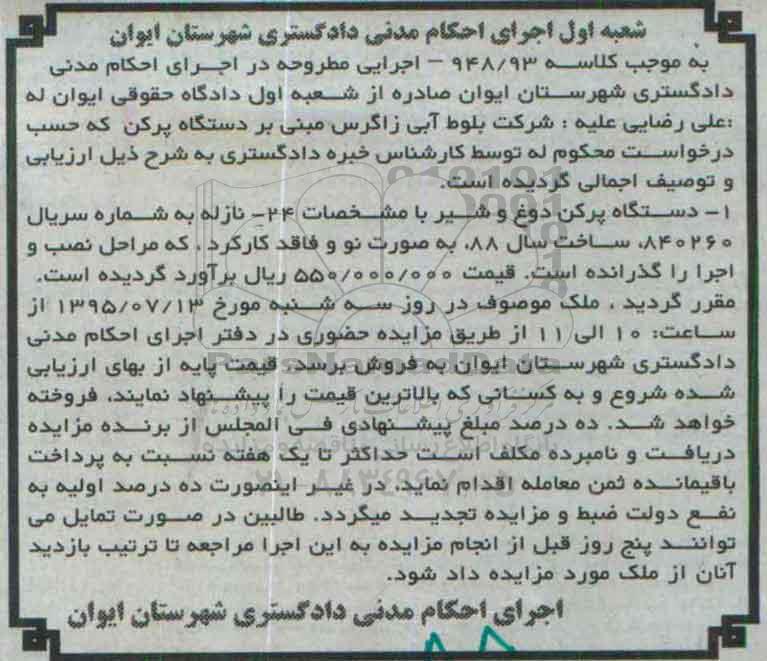 شعبه اول اجرای احکام مدنی دادگستری شهرستان ایوان
به موجب کلاسه ۹۴۸/۹۳ – اجرایی مطروحه در اجرای احکام مدنی
دادگستری شهرستان ایوان صادره از شعبه اول دادگاه حقوقی ایوان له
:علی رضایی علیه : شرکت بلوط آبی زاگرس مبنی بر دستگاه پرکن که حسب
درخواست محکوم له توسط کارشناس خبره دادگستری به شرح ذیل ارزیابی
و توصیف اجمالی گردیده است.
۱– دستگاه پرکن دوغ و شیر با مشخصات ۲۴– نازله به شماره سریال
۸۴۰۲۶۰، ساخت سال ۸۸، به صورت نو و فاقد کارکرد ، که مراحل نصب و
اجرا را گذرانده است. قیمت ۵۵۰/۰۰۰/۰۰۰ ریال برآورد گردیده است.
مقرر گردید ، ملک موصوف در روز سه شنبه مورخ ۱۳۹۵/۰۷/۱۳ از
ساعت: ۱۰ الی ۱۱ از طریق مزایده حضوری در دفتر اجرای احکام مدنی
دادگستری شهرستان ایوان به فروش برسد، قیمت پایه از بهای ارزیابی
شده شروع و به کسانی که بالاترین قیمت را پیشنهاد نمایند، فروخته
خواهد شد. ده درصد مبلغ پیشنهادی فی المجلس از برنده مزایده
دریافت و نامبرده مکلف است حداکثر تا یک هفته نسبت به پرداخت
باقیمانده ثمن معامله اقدام نماید، در غیر اینصورت ده درصد اولیه به
نفع دولت ضبط و مزایده تجدید میگردد. طالبین در صورت تمایل می
توانند پنج روز قبل از انجام مزایده به این اجرا مراجعه تا ترتیب بازدید
آنان از ملک مورد مزایده داد شود.
اجرای احکام مدنی دادگستری شهرستان ایوان
ParsNamadData